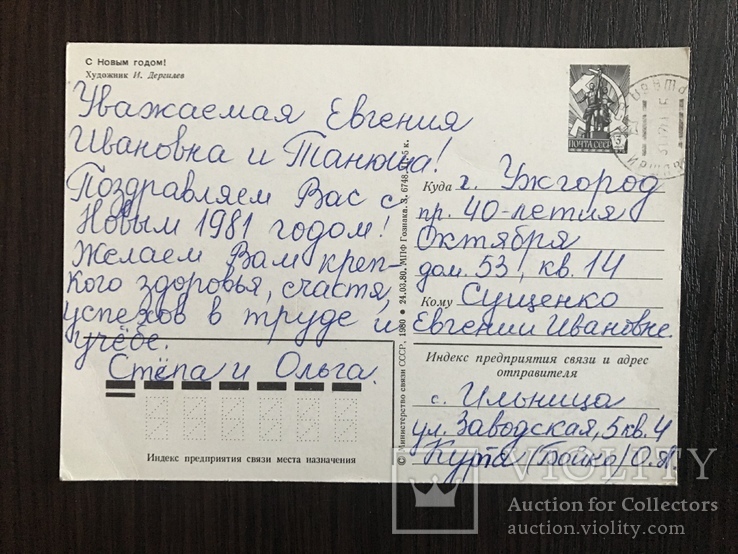 С Новым годом!
Художник И. Дергилев
Уважаемая Евгения
Ивановна и Танюша!
Поздравляем Вас с
Новым 1981 годом!
Желаем Вам креп-
кого здоровья, счастя,
успехов в труде и
учёбе.
Стёпа и Ольга.
Индекс предприятия связи места назначения
© Министерство связи СССР, 1980 • 24.03.80. МПФ Гознака. З. 6748. 5 к.
ПОЧТА СССР
Куда г. Ужгород
пр. 40-летия
Октября
дом. 53, кв. 14
Кому Сущенко
Евгении Ивановне.
Индекс предприятия связи и адрес
отправителя
с. Ильница
ул. Заводская, 5 кв. 4
Курта /Бойко/
VIOLITY
Auction for Collectors
auction.violity.com